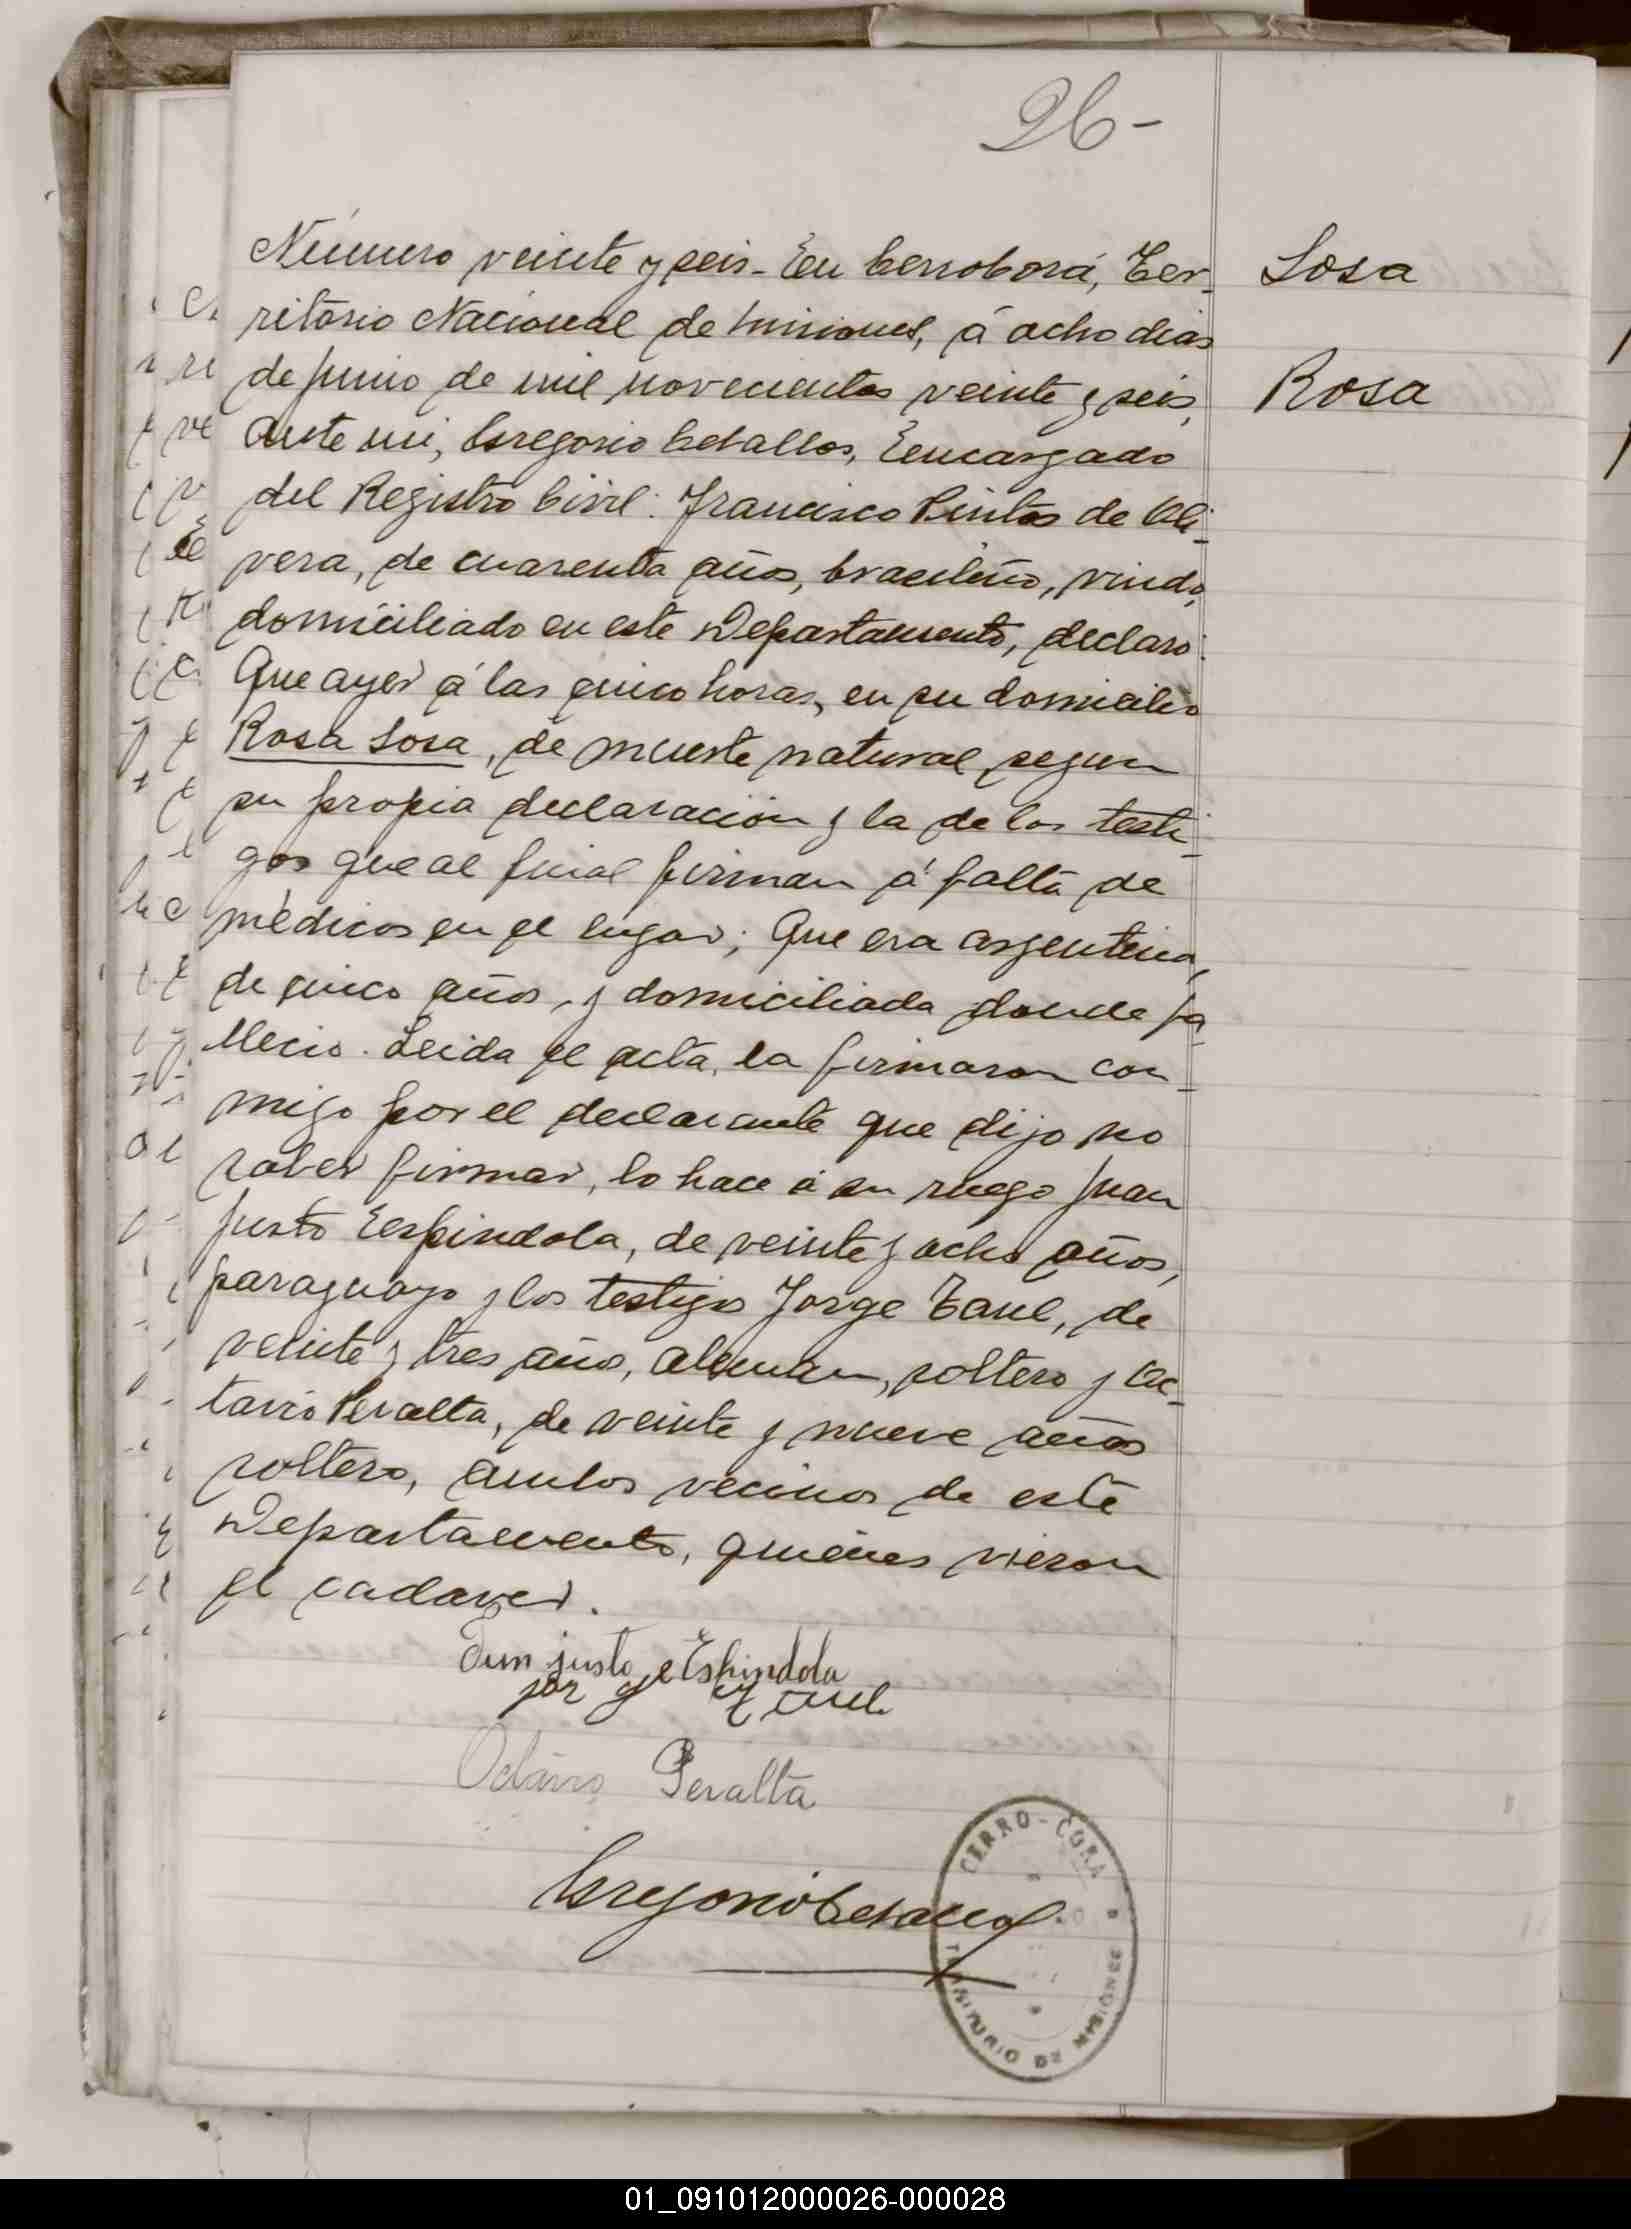 26-
Número veinte y seis - En Cerrocorá, Ter-
ritorio Nacional de Misiones, á ocho dias
de Junio de mil novecientos veinte y seis,
Ante mi, Gregorio Ceballos, Encargado
del Registro Civil: Francisco Pintos de Oli-
vera, de cuarenta años, brasileño, viudo,
domiciliado en este Departamento, declaro:
Que ayer á las cinco horas, en su domicilio
Rosa Sosa, de muerte natural segun
su propia declaración y la de los testi-
gos que al final firman á falta de
médicos en el lugar; Que era argentina,
de cinco años, y domiciliada donde fa-
llecio. Leida el acta, la firmaron con-
migo por el declarante que dijo no
saber firmar, lo hace á su ruego Juan
Justo Espindola, de veinte y ocho años,
paraguayo y los testigos Jorge Taul, de
veinte y tres años, aleman, soltero y Oc-
tavio Peralta, de veinte y nueve años
soltero, ambos vecinos de este
Departamento, quienes vieron
el cadaver.
Sosa
Rosa
Juan justo Espindola
Octavio Peralta
Gregorio Ceballos
CERRO-CORA
TERRITORIO DE MISIONES
01_091012000026-000028